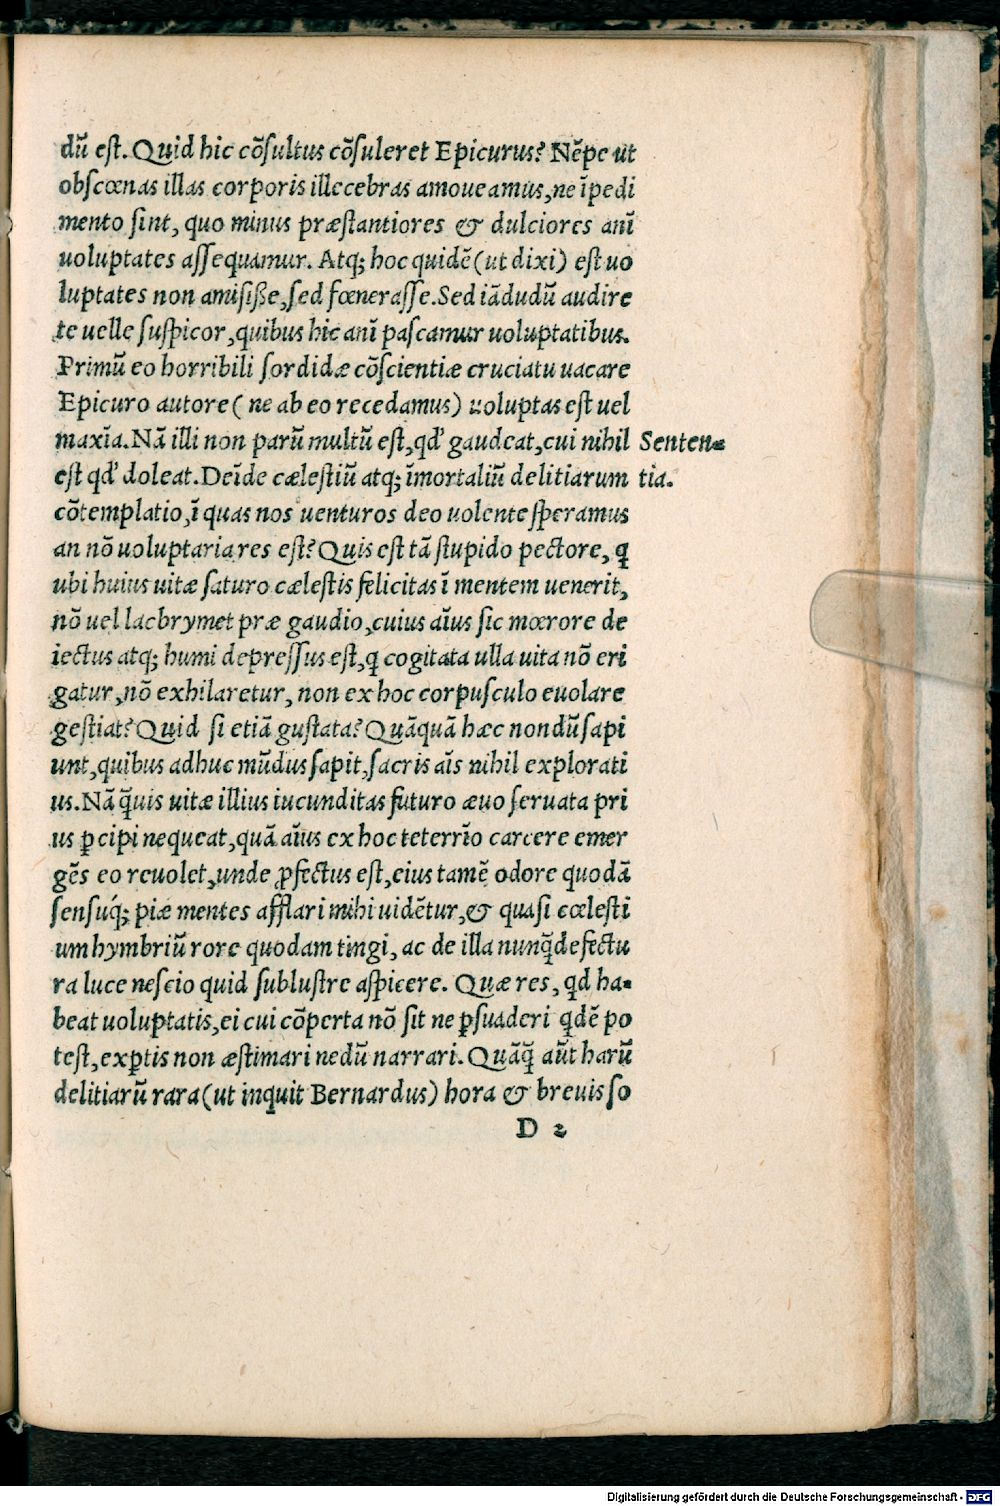 dũ est. Quid hic cõſultus cõſuleret Epicurus? Nẽpe ut
obſcœnas illas corporis illecebras amoueamus, ne ĩpedi
mento ſint, quo minus præſtantiores & dulciores anĩ
uoluptates aſſequamur. Atq; hoc quidẽ (ut dixi) est uo
luptates non amiſiſſe, ſed fœneraſſe. Sed iãdudũ audire
te uelle ſuſpicor, quibus hic anĩ paſcamur uoluptatibus.
Primũ eo horribili ſordidæ cõſcientiæ cruciatu uacare
Epicuro autore ( ne ab eo recedamus) uoluptas eſt uel
maxĩa. Nã illi non parũ multũ eſt, qđ gaudeat, cui nihil
Senten=
eſt qđ doleat. Deĩde cæleſtiũ atq; ĩmortaliũ delitiarum
tia.
cõtemplatio, ĩ quas nos uenturos deo uolente ſperamus
an nõ uoluptaria res eſt? Quis eſt tã ſtupido pectore, ꝗ
ubi huius uitæ ſaturo cæleſtis felicitas ĩ mentem uenerit,
nõ uel lachrymet præ gaudio, cuius aĩus ſic mœrore de
iectus atq; humi depreſſus eſt, ꝗ cogitata ulla uita nõ eri
gatur, nõ exhilaretur, non ex hoc corpuſculo euolare
geſtiat? Quid ſi etiã guſtata? Quãquã hæc nondũ ſapi
unt, quibus adhuc mũdus ſapit, ſacris aĩs nihil explorati
us. Nã q̃uis uitæ illius iucunditas futuro æuo ſeruata pri
us ꝑcipi nequeat, quã aĩus ex hoc teterrĩo carcere emer
gẽs eo reuolet, unde ꝓfectus eſt, eius tamẽ odore quodã
ſenſuq́; piæ mentes afflari mihi uidẽtur, & quaſi cœleſti
um hymbriũ rore quodam tingi, ac de illa nunq̃ defectu
ra luce neſcio quid ſubluſtre aſpicere. Quæ res, qđ ha=
beat uoluptatis, ei cui cõperta nõ ſit ne ꝑſuaderi qdẽ po
teſt, exꝑtis non æſtimari nedũ narrari. Quãq̃ aũt harũ
delitiarũ rara (ut inquit Bernardus) hora & breuis ſo
D 2
Digitalisierung gefördert durch die Deutsche Forschungsgemeinschaft - DFG